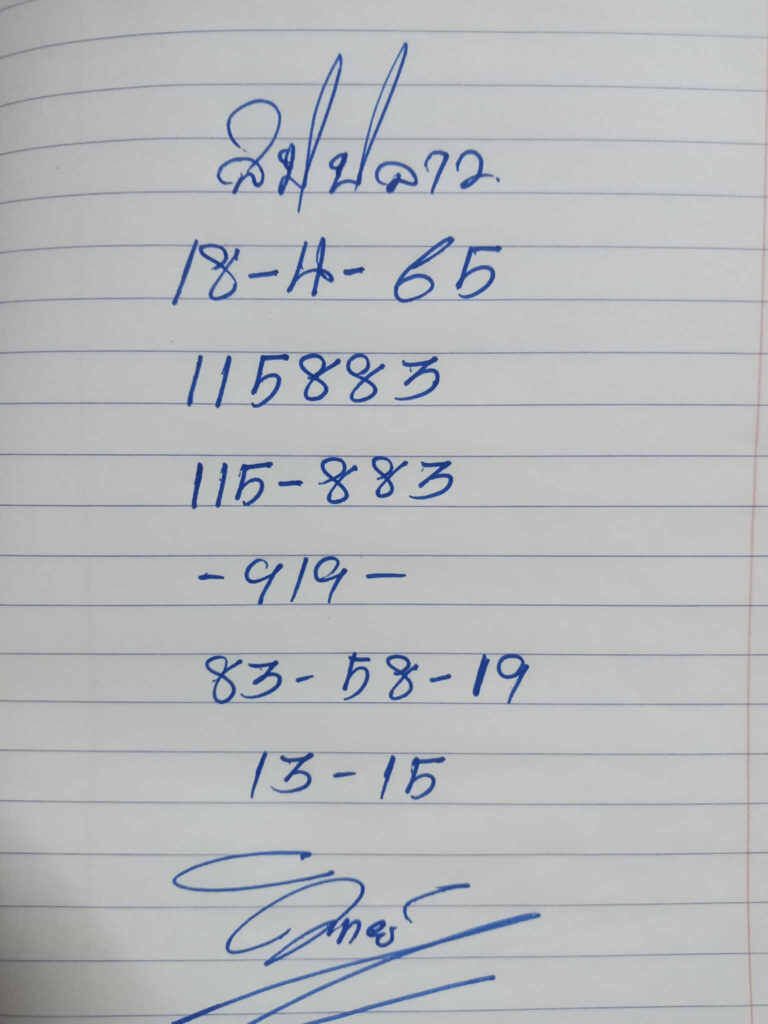 18-4-65
115883
115-883
-919-
83-58-19
13-15